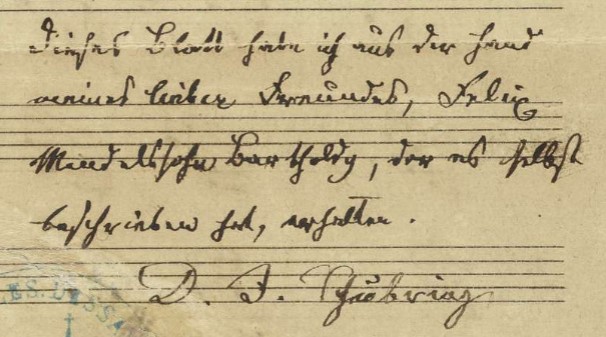 Dieses Blatt habe ich aus der Hand
meines lieben Freundes, Felix
Mendelssohn Bartholdy, der es selbst
beschrieben hat, erhalten.
D. J. Schubring